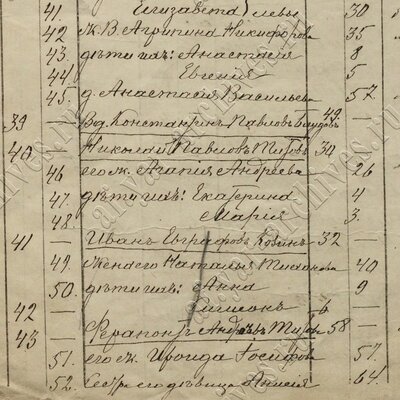 41. Елизавета 30
42 ж. В Агрипина Никифорова 35
43. дѣти ихъ: Анастасія 8
44. Евгенія 5
45. д. Анастасія Васильева 57.
39 — Вд. Константинъ Павловъ 49.
40 — Николай Павловъ 34
46 его ж. Агапія Андреева 26
47. дѣти ихъ: Екатерина 4
48. Марія 3.
41 — Иванъ Евграфовъ 32 —
49. Жена его Наталья 40
50. дѣти ихъ: Анна 9
42 — Симеонъ 6
43 — Ферапонтъ 58 —
51. его ж. Ироида Іосифова 57.
52. Сестра его дѣвица 64.